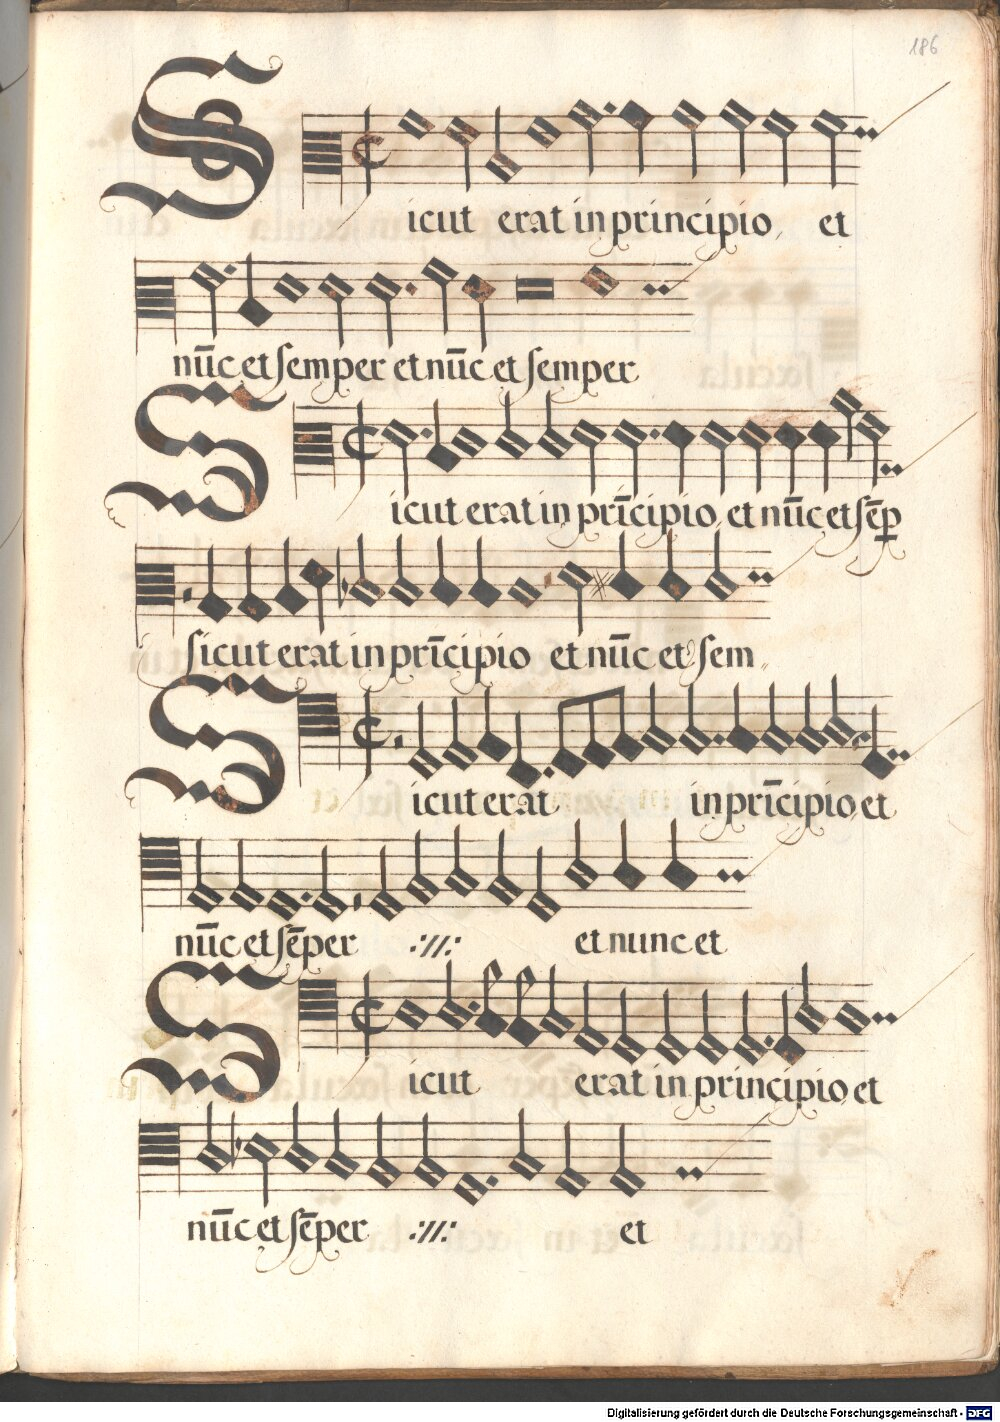 186
Sicut erat in principio et
nūc et semper et nūc et semper
Sicut erat in prīcipio et nūc et sēꝑ
sicut erat in prīcipio et nūc et sem
Sicut erat in prīcipio et
nūc et sēper ·//· et nunc et
Sicut erat in principio et
nūc et sēper ·//· et
Digitalisierung gefördert durch die Deutsche Forschungsgemeinschaft - DFG